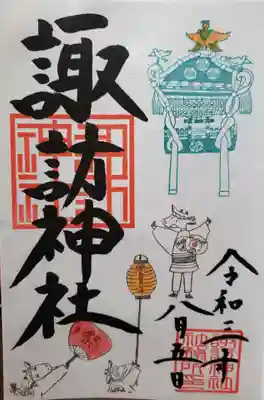 令和三年
八月五日
諏訪神社